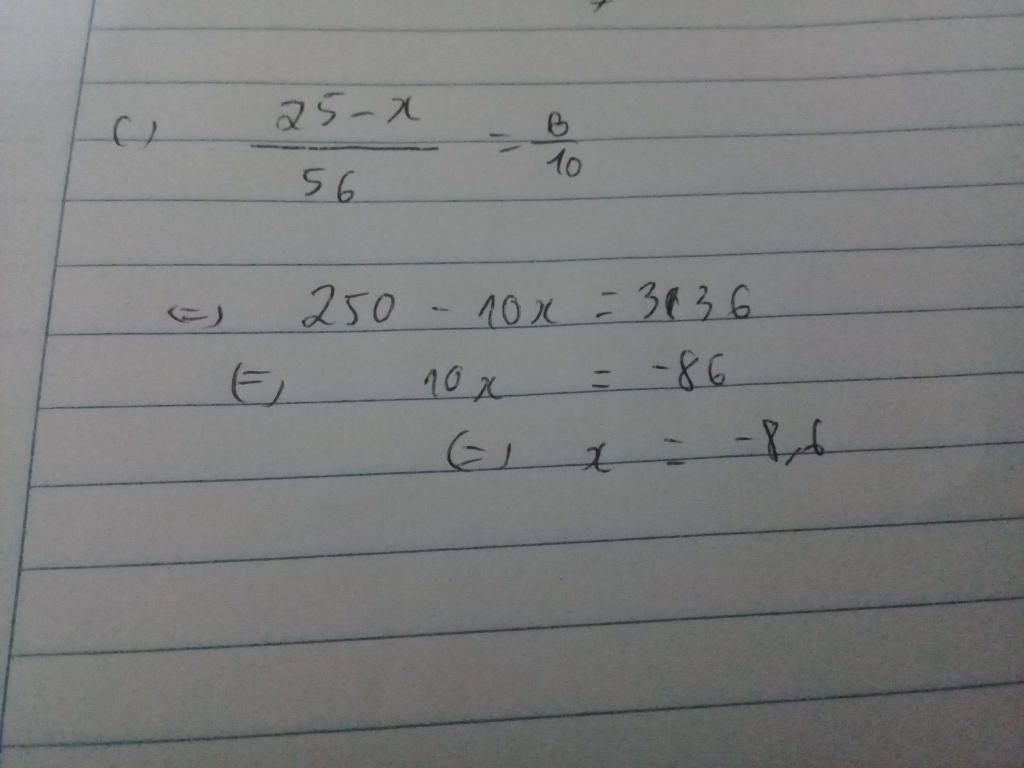 c) \frac{25-x}{56} = \frac{6}{10}
<=> 250 - 10x = 336
<=> 10x = -86
<=> x = -8,6